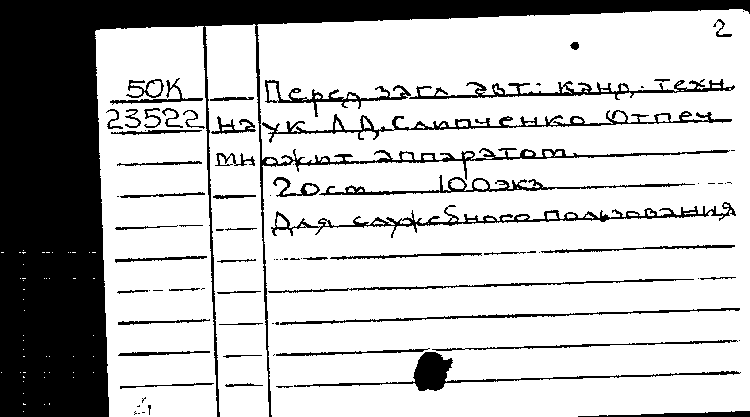 2
50К Перед загл. авт.: канд. техн.
23522 наук Л.Д.Слипченко Отпеч
множит аппаратом.
20см 100экз
Для служебного пользования